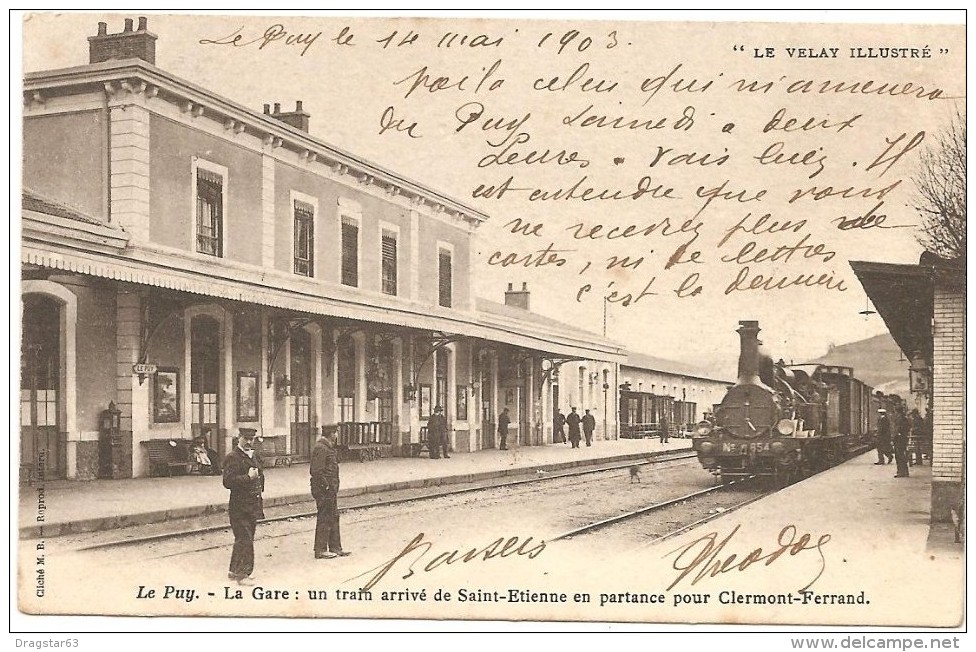 Le Puy le 14 mai 1903.
“ LE VELAY ILLUSTRÉ ”
Voilà celui qui m'amenera
au Puy Samedi a deux
heures. Vais bien. Il
est entendu que vous
ne recevrez plus de
cartes, ni de lettres
c'est la derniere
LE PUY
N° 954
Baisers Theodore
Cliché M. B. — Reprod. interd.
Le Puy. - La Gare : un train arrivé de Saint-Etienne en partance pour Clermont-Ferrand.
Dragstar63
www.delcampe.net